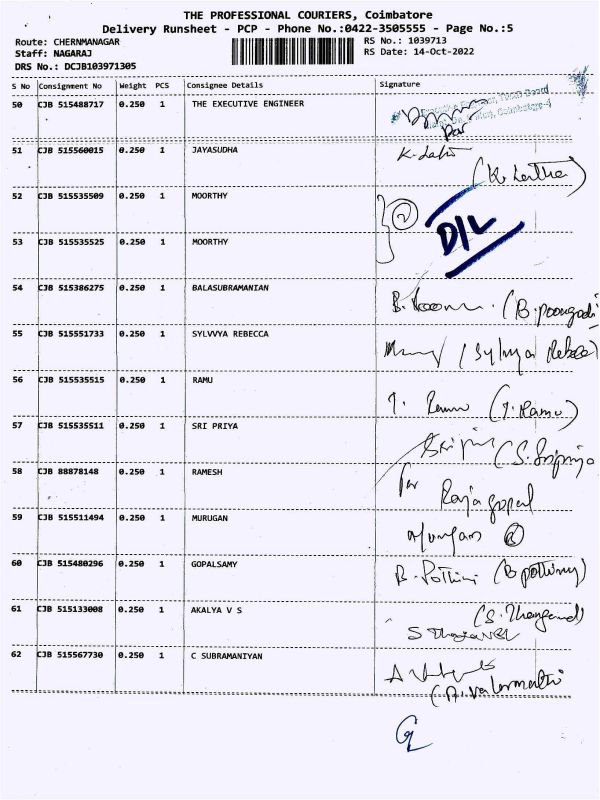 THE PROFESSIONAL COURIERS, Coimbatore
Delivery Runsheet - PCP - Phone No.:0422-3505555 - Page No.:5
Route: CHERNMANAGAR RS No.: 1039713
Staff: NAGARAJ RS Date: 14-Oct-2022
DRS No.: DCJB103971305
S No Consignment No Weight PCS Consignee Details Signature
50 CJB 515488717 0.250 1 THE EXECUTIVE ENGINEER
For
51 CJB 515560015 0.250 1 JAYASUDHA
(K. Latha)
52 CJB 515535509 0.250 1 MOORTHY 2
D/L
53 CJB 515535525 0.250 1 MOORTHY
54 CJB 515386275 0.250 1 BALASUBRAMANIAN
(B. poongodi
55 CJB 515551733 0.250 1 SYLVVYA REBECCA
56 CJB 515535515 0.250 1 RAMU
(J. Ramu)
57 CJB 515535511 0.250 1 SRI PRIYA
(S. Sripriya
58 CJB 88878148 0.250 1 RAMESH for
Rajagopal
59 CJB 515511494 0.250 1 MURUGAN
Murugan
60 CJB 515480296 0.250 1 GOPALSAMY
61 CJB 515133008 0.250 1 AKALYA V S
62 CJB 515567730 0.250 1 C SUBRAMANIYAN
(A. Valarmathi